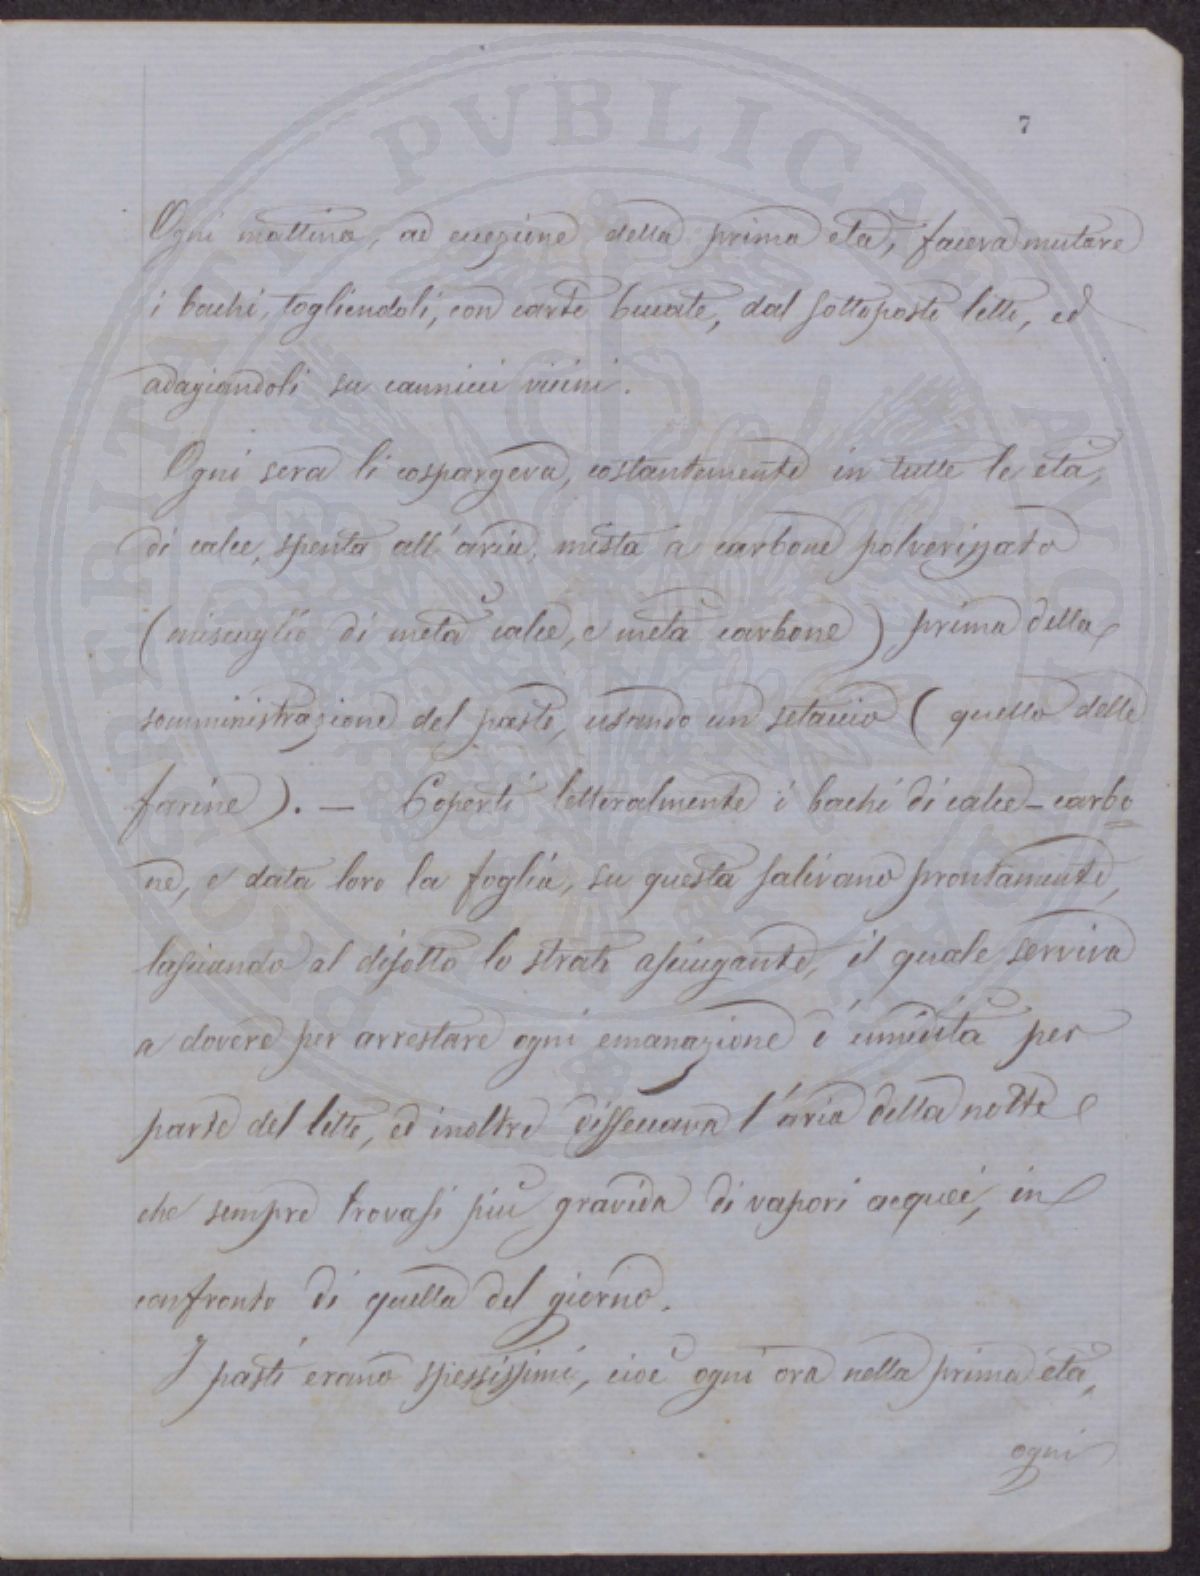 7
Ogni mattina, ad eccezione della prima età, faceva mutare
i bachi, togliendoli, con carte bucate, dal sottoposto letto, ed
adagiandoli su cannicci vicini.
Ogni sera li cospargeva, costantemente in tutte le età,
di calce, spenta all'aria, mista a carbone polverizzato
(miscuglio di metà calce, e metà carbone) prima della
somministrazione del pasto, usando un setaccio (quello delle
farine). — Coperti letteralmente i bachi di calce-carbo
ne, e data loro la foglia, su questa salivano prontamente,
lasciando al disotto lo strato asciugante, il quale serviva
a dovere per arrestare ogni emanazione e umidità per
parte del letto, ed inoltre disseccava l'aria della notte
che sempre trovasi più gravida di vapori acquei, in
confronto di quella del giorno.
I pasti erano spessissimi, cioè ogni ora nella prima età,
ogni
PROSPERITATI PVBLICAE AVGENDAE